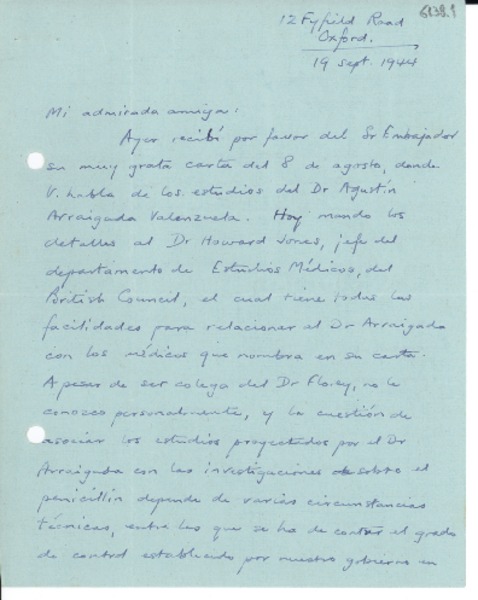 6838.1
12 Fyfield Road
Oxford.
19 sept. 1944
Mi admirada amiga:
Ayer recibí por favor del Sr Embajador
su muy grata carta del 8 de agosto, donde
V. habla de los estudios del Dr Agustín
Arraigada Valenzuela. Hoy mando los
detalles al Dr Howard Jones, jefe del
departamento de Estudios Médicos, del
British Council, el cual tiene todas las
facilidades para relacionar el Dr Arraigada
con los médicos que nombra en su carta.
A pesar de ser colega del Dr Florey, no le
conozco personalmente, y la cuestión de
asociar los estudios proyectados por el Dr
Arraigada con las investigaciones sobre el
penicillin depende de varias circunstancias
técnicas, entre las que se ha de contar el grado
de control establecido por nuestro gobierno en